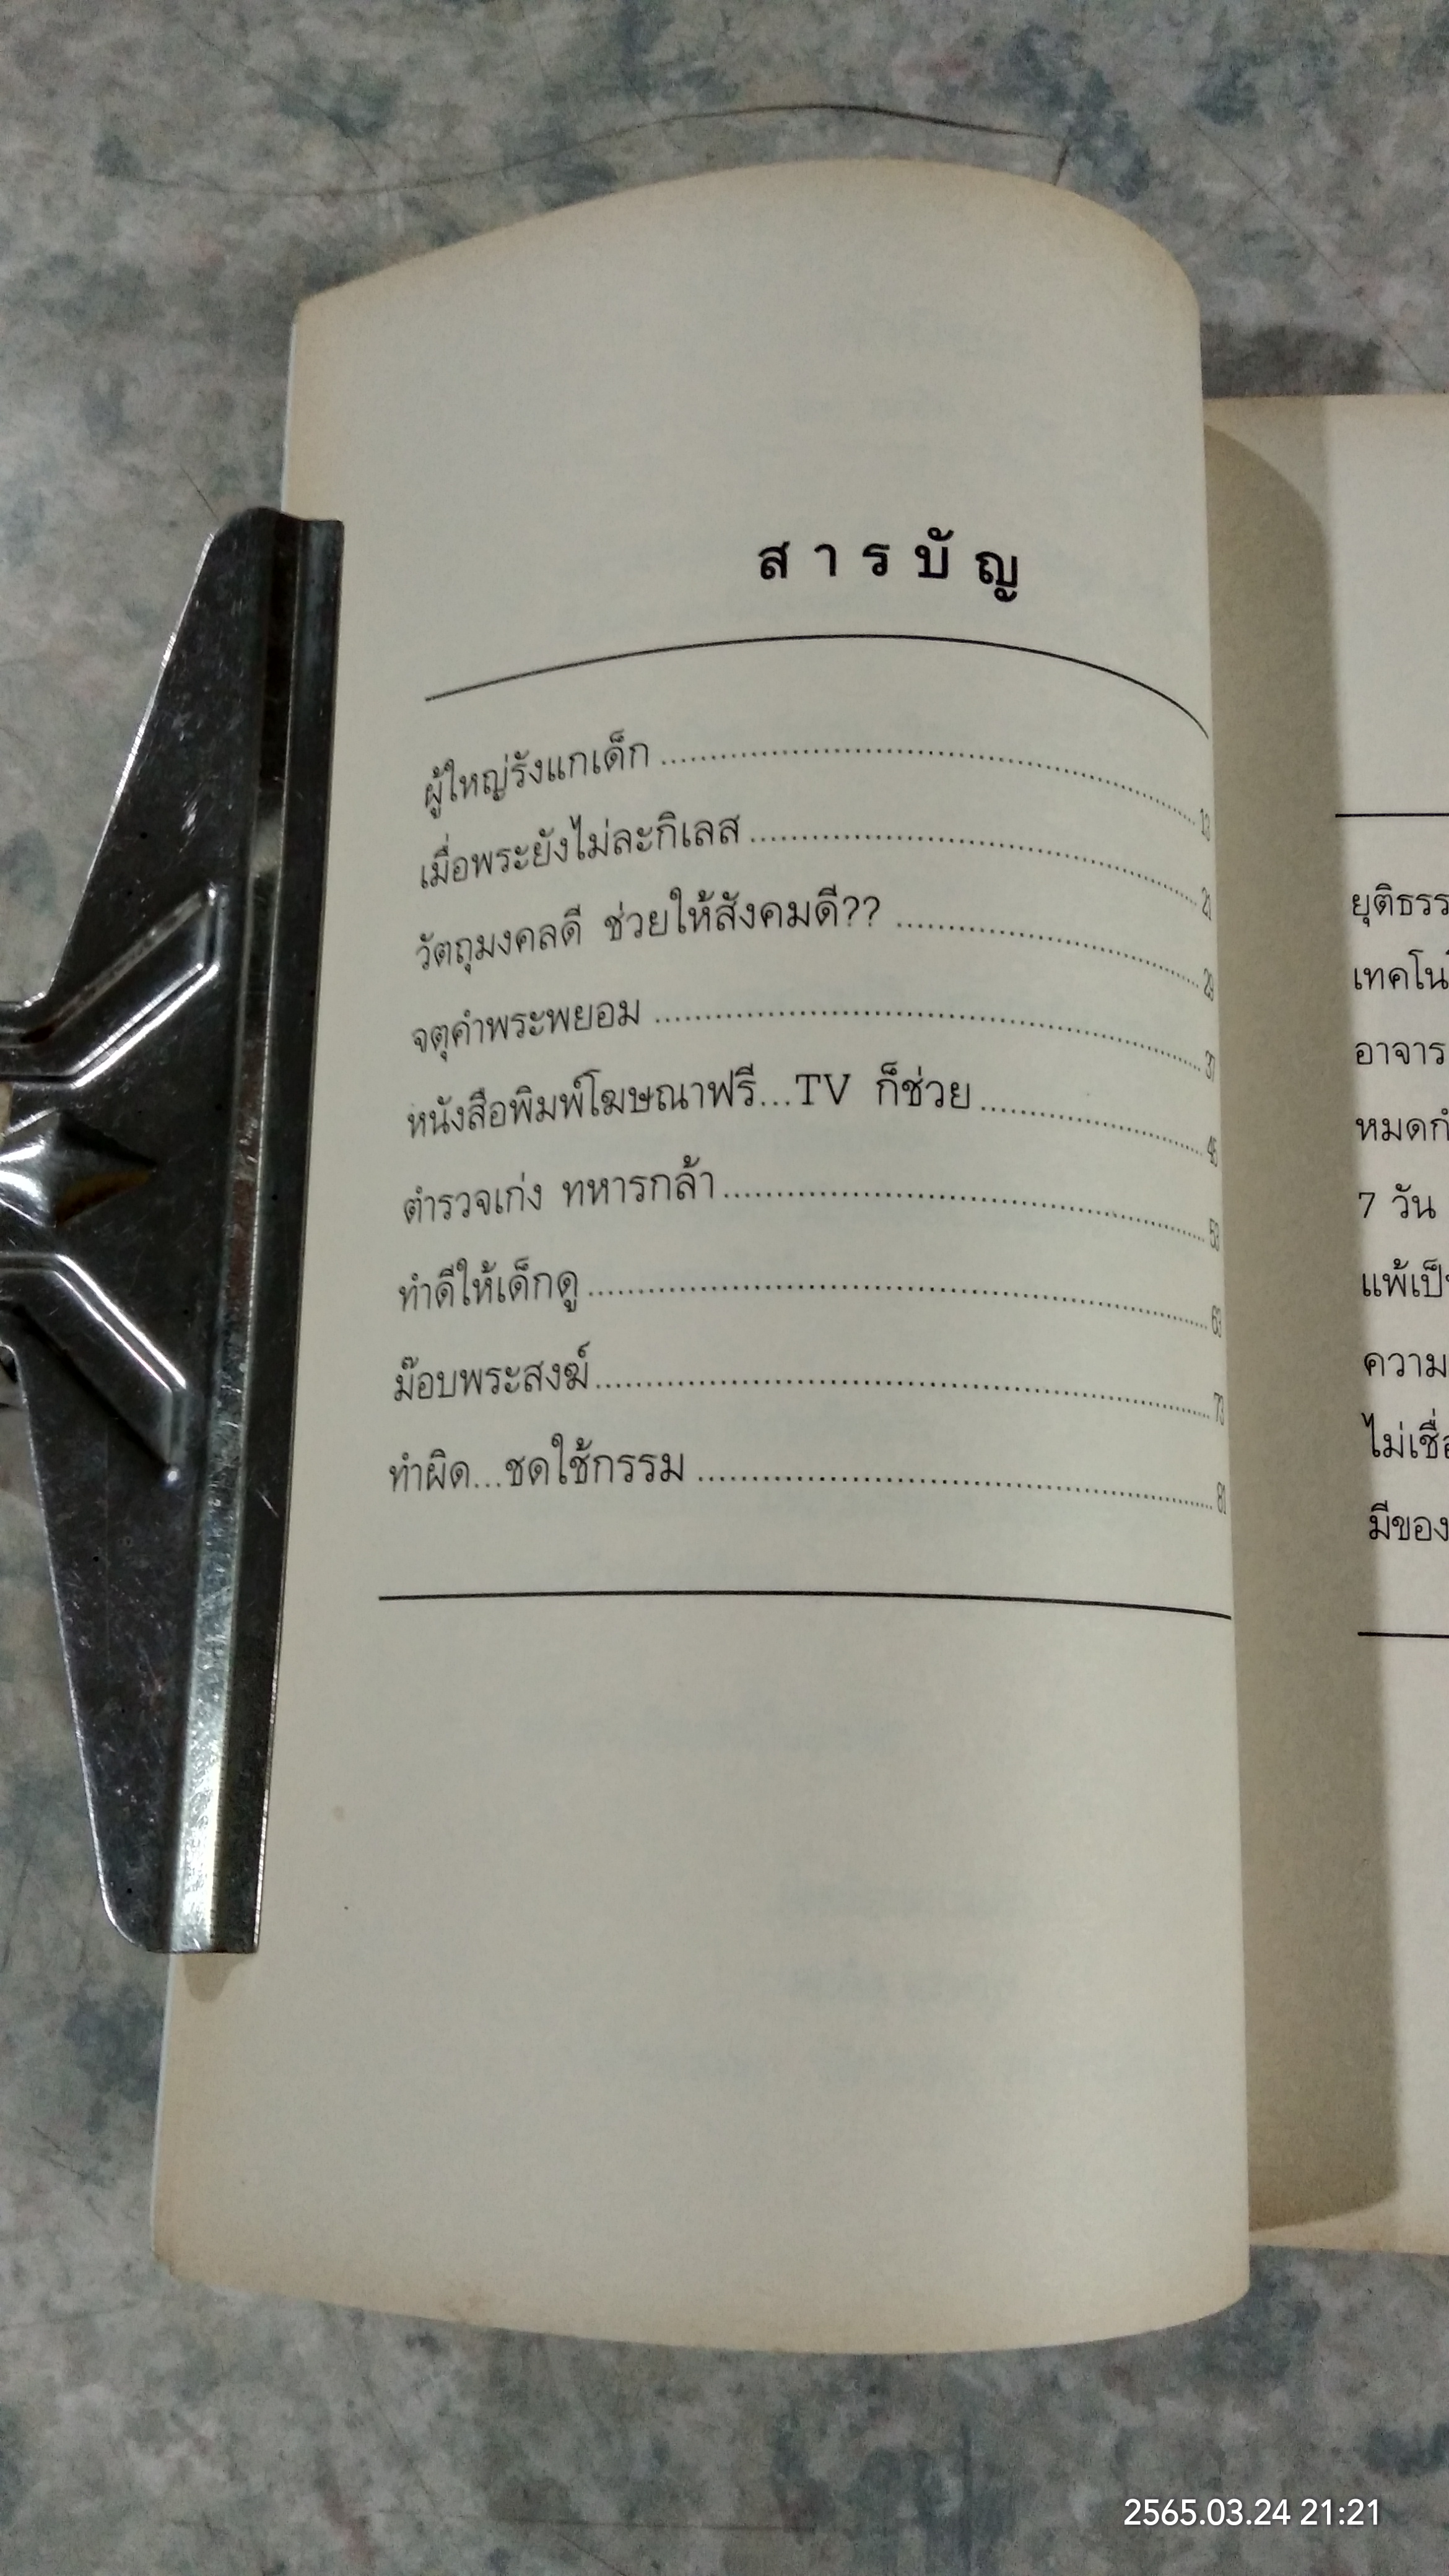 สารบัญ
ผู้ใหญ่รังแกเด็ก ........................ 13
เมื่อพระยังไม่ละกิเลส ........................ 21
วัตถุมงคลดี ช่วยให้สังคมดี?? ........................ 29
จตุคำพระพยอม ........................ 37
หนังสือพิมพ์โฆษณาฟรี...TV ก็ช่วย ........................ 45
ตำรวจเก่ง ทหารกล้า ........................ 53
ทำดีให้เด็กดู ........................ 63
ม๊อบพระสงฆ์ ........................ 73
ทำผิด...ชดใช้กรรม ........................ 81
ยุติธรร
เทคโน
อาจาร
หมดก
7 วัน
แพ้เป็
ความ
ไม่เชื่
มีของ
2565.03.24 21:21